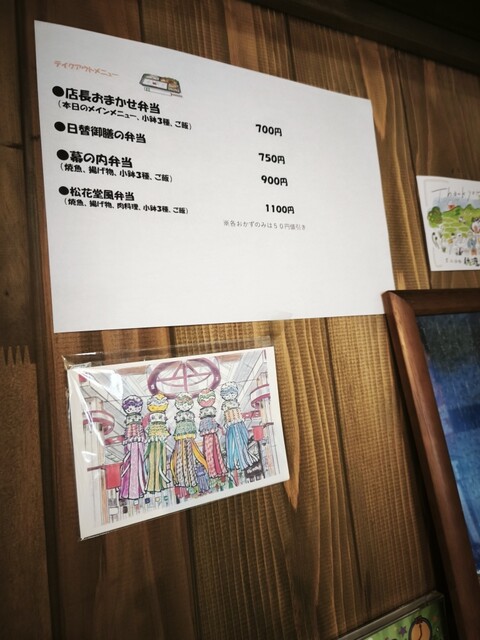 テイクアウトメニュー
●店長おまかせ弁当
(本日のメインメニュー、小鉢3種、ご飯)
700円
●日替御膳の弁当
750円
●幕の内弁当
900円
(焼魚、揚げ物、小鉢3種、ご飯)
●松花堂風弁当
1100円
(焼魚、揚げ物、肉料理、小鉢3種、ご飯)
※各おかずのみは50円値引き
Thank you